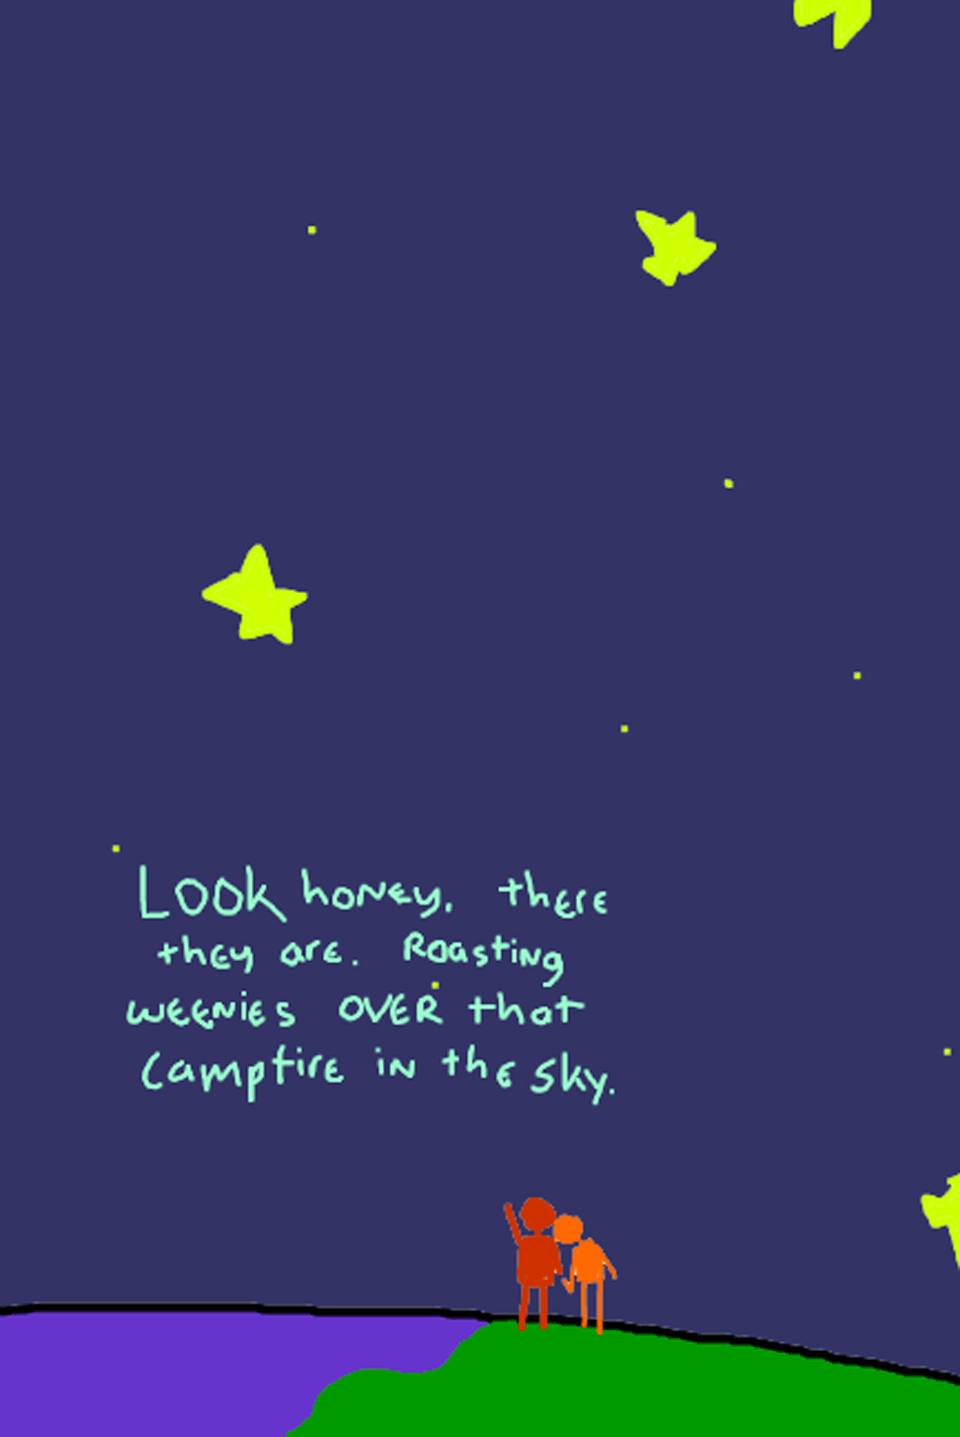 Look honey, there
they are. Roasting
weenies over that
campfire in the sky.